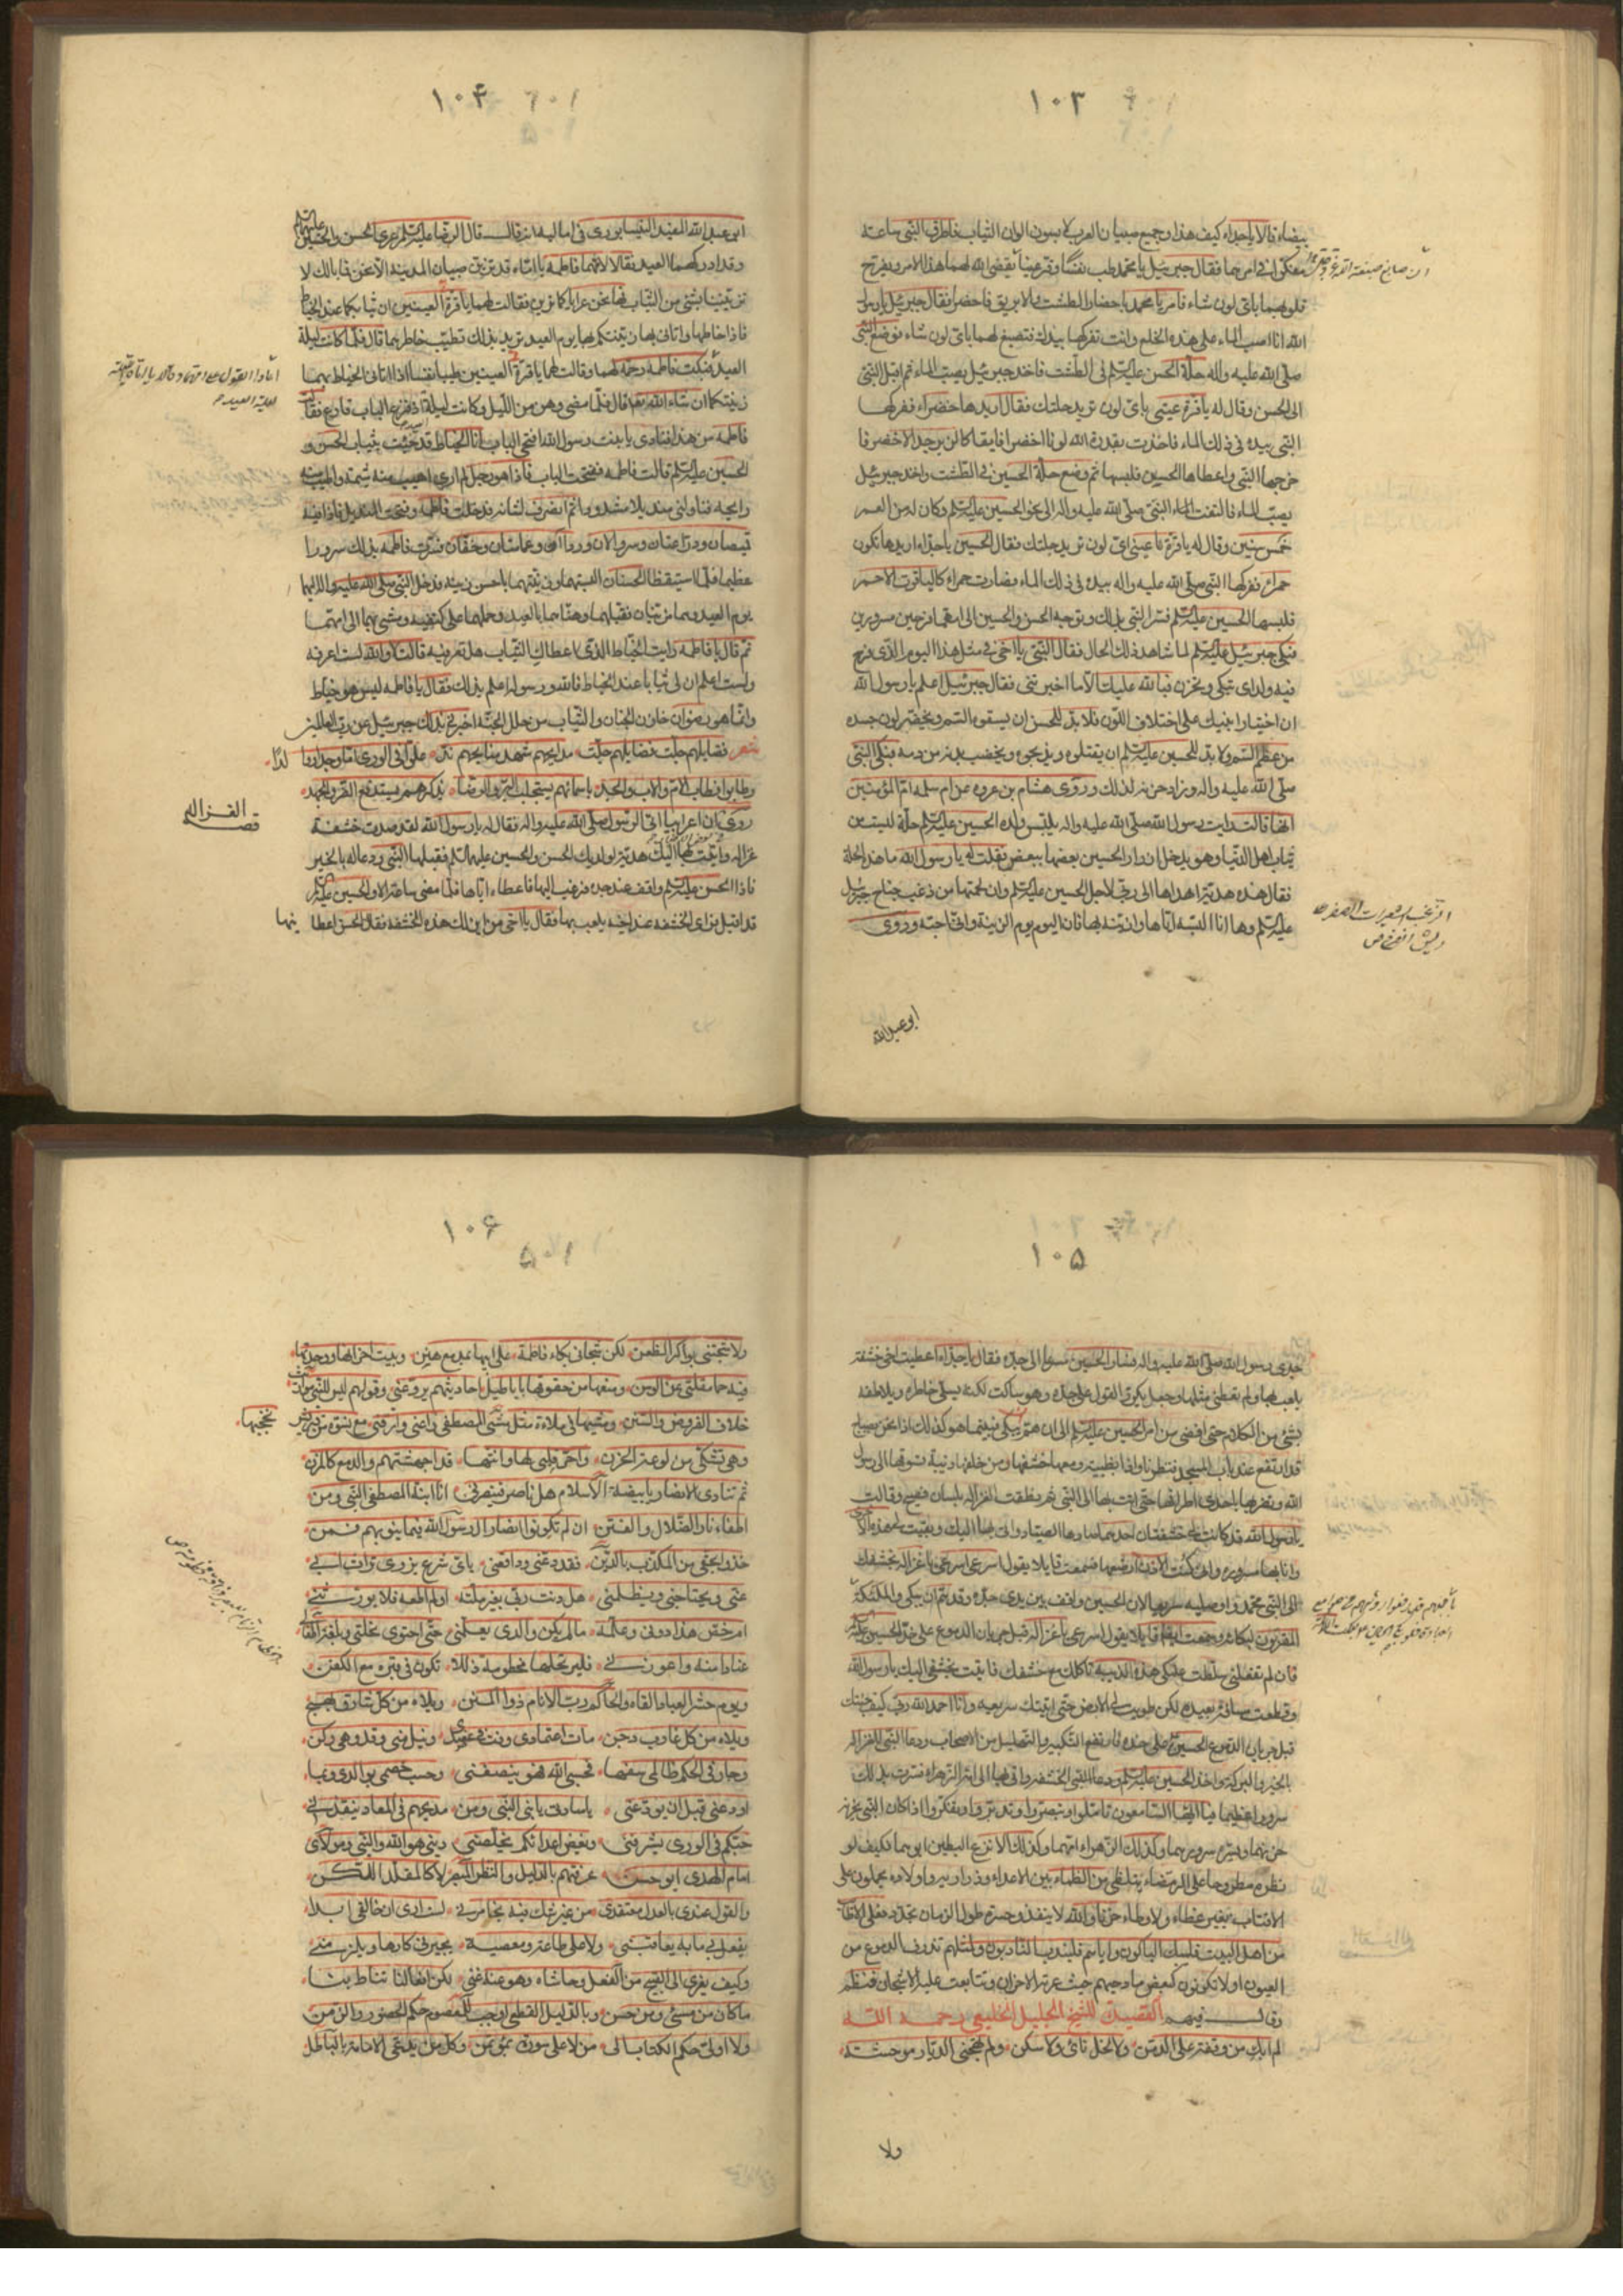 ١٠٣
بيضاء فقالا يا جداه كيف هذا وجميع صبيان العرب لابسون الوان الثياب فاطرق النبي ساعة
متفكرا في امرهما فقال جبرئيل يا محمد طب نفسا وقر عينا يقضي الله لهما هذا الامر ويفرح
قلوبهما باي لون شاء فامر يا محمد باحضار الطشت والابريق فاحضرا فقال جبرئيل يا رسول
الله انا اصب الماء على هذه الخلع وانت تفركها بيدك فتصبغ لهما باي لون شاء فوضع النبي
صلى الله عليه واله حلة الحسن عليه السلم في الطشت فاخذ جبرئيل يصب الماء ثم اقبل النبي
الى الحسن وقال له يا قرة عيني باي لون تريد حلتك فقال اريدها خضراء ففركها
النبي بيده في ذلك الماء فاخذت بقدرة الله لونا اخضر فايقا كالزبرجد الاخضر فا
خرجها النبي واعطاها الحسين فلبسها ثم وضع حلة الحسين في الطشت واخذ جبرئيل
يصب الماء فالتفت النبي صلى الله عليه واله الى نحو الحسين عليه السلم وكان له من العمر
خمس سنين وقال له يا قرة عيني اي لون تريد حلتك فقال الحسين يا جداه اريدها تكون
حمراء ففركها النبي صلى الله عليه واله بيده في ذلك الماء فصارت حمراء كالياقوت الاحمر
فلبسها الحسين عليه السلم فسر النبي بذلك وتوجه الحسن والحسين الى امهما فرحين مسرورين
فبكى جبرئيل عليه السلم لما شاهد ذلك الحال فقال النبي يا اخي في مثل هذا اليوم الذي فرح
فيه ولداي تبكي وتحزن فبالله عليك الا ما اخبرتني فقال جبرئيل اعلم يا رسول الله
ان اختيار ابنيك على اختلاف اللون فلا بد للحسن ان يسقوه السم ويخضر لون جسده
من عظم السم ولا بد للحسين عليه السلم ان يقتلوه ويذبحوه ويخضب بدنه من دمه فبكى النبي
صلى الله عليه واله وزاد حزنه لذلك وروى هشام بن عروه عن ام سلمه ام المؤمنين
انها قالت رايت رسول الله صلى الله عليه واله يلبس ولده الحسين عليه السلم حلة ليست من
ثياب اهل الدنيا وهو يدخل ازرار الحسين بعضها ببعض فقلت له يا رسول الله ما هذه الحلة
فقال هذه هدية اهداها الى ربي لاجل الحسين عليه السلم وان لحمتها من زغب جناح جبرئيل
عليه السلم وها انا البسه اياها وازينه بها فان اليوم يوم الزينة واني احبه وروى
ابو عبد الله
١٠٤
ابو عبد الله المفيد النيسابوري في اماليه انه قال قال الرضا عليه السلم عري الحسن والحسين عليهما السلم
وقد ادركهما العيد فقالا لامهما فاطمه يا اماه قد تزين صبيان المدينه الا نحن فما بالك لا
تزينينا بشيء من الثياب فها نحن عرايا كما ترين فقالت لهما يا قرة العينين ان ثيابكما عند الخياط
فاذا خاطها واتاني بها زينتكما بها يوم العيد تريد بذلك تطييب خاطرهما قال فلما كانت ليلة
العيد فبكت فاطمه رحمة لهما وقالت لهما يا قرة العينين طيبا نفسا اذا اتاني الخياط بهما
زينتكما ان شاء الله تعالى قال فلما مضى وهن من الليل وكانت ليلة اذ قرع الباب قارع فقالت
فاطمه من هذا فنادى يا بنت رسول الله افتحي الباب انا الخياط قد جئت بثياب الحسن و
الحسين عليه السلم قالت فاطمه ففتحت الباب فاذا هو رجل لم ار اهيب منه شيمة واطيب منه
رايحه فناولني منديلا مشدودا ثم انصرف لشانه فدخلت فاطمه وفتحت المنديل فاذا فيه
قميصان ودراعتان وسروالان ورداآن وعمامتان وخفان فسرت فاطمه بذلك سرورا
عظيما فلما استيقظ الحسنان البستهما وزينتهما باحسن زينه فدخل النبي صلى الله عليه واله اليهما
يوم العيد وهما مزينان فقبلهما وهناهما بالعيد وحملهما على كتفيه ومشى بهما الى امهما
ثم قال يا فاطمه رايت الخياط الذي اعطاك الثياب هل تعرفيه قالت لا والله لست اعرفه
ولست اعلم ان لي ثيابا عند الخياط فالله ورسوله اعلم بذلك فقال يا فاطمه ليس هو خياط
وانما هو رضوان خازن الجنان والثياب من حلل الجنة اخبرني بذلك جبرئيل عن رب العالمين
شعر فضايلهم جلت فضايلهم حلت مدايحهم شهد منايحهم ند علي في الورى
وطابوا فطاب الام والاب والجد باسمائهم يستجلب البر والرضا بذكرهم يستدفع الضر والجهد
روى ان اعرابيا اتى الرسول صلى الله عليه واله فقال له يا رسول الله لقد صدت خشفة
غزاله واتيت بها اليك هدية لولديك الحسن والحسين عليهما السلم فقبلها النبي ودعا له بالخير
فاذا الحسن عليه السلم واقف عند جده فرغب اليها فاعطاه اياها فلما مضى ساعة الا والحسين عليه السلم
قد اقبل فراى الخشفه عند اخيه يلعب بها فقال يا اخي من اين لك هذه الخشفه فقال الحسن اعطانيها
قصة الغزاله
١٠٥
جدي رسول الله صلى الله عليه واله فسار الحسين مسرعا الى جده فقال يا جداه اعطيت اخي خشفة
يلعب بها ولم تعطني مثلها وجعل يكرر القول على جده وهو ساكت لكنه يسلي خاطره ويلاطفه
بشيء من الكلام حتى افضى من امر الحسين عليه السلم الى ان هم يبكي فبينما هو كذلك اذا نحن بصياح
قد ارتفع عند باب المسجد فنظرنا واذا بظبية ومعها خشفها ومن خلفها ذيبة تسوقها الى رسول
الله وتضربها باحدى اطرافها حتى اتت بها الى النبي ثم نطقت الغزاله بلسان فصيح وقالت
يا رسول الله قد كانت لي خشفتان احدهما صادها الصياد واتى بها اليك وبقيت لي هذه الاخرى
وانا بها مسروره واني كنت الآن ارضعها فسمعت قايلا يقول اسرعي اسرعي يا غزاله بخشفك
الى النبي محمد واوصليه سريعا لان الحسين واقف بين يدي جده وقد هم ان يبكي والملئكة
المقربون لبكائه وسمعت ايضا قايلا يقول اسرعي يا غزاله قبل جريان الدموع على خد الحسين عليه السلم
فان لم تفعلي سلطت عليك هذه الذيبه تاكلك مع خشفك فاتيت بخشفي اليك يا رسول الله
وقطعت مسافة بعيده لكن طويت لي الارض حتى اتيتك سريعه وانا احمد الله ربي كيف جئتك
قبل جريان الدموع الحسين على خده فارتفع التكبير والتهليل من الاصحاب ودعا النبي للغزاله
بالخير والبركة واخذ الحسين عليه السلم الخشفه واتى بها الى امه الزهراء فسرت بذلك
سرورا عظيما فيا ايها السامعون تاملوا وتبصروا وتدبروا وتفكروا اذا كان النبي يحزن
حزنهما ويسره سرورهما وكذلك الزهراء امهما وكذلك الانزع البطين ابوهما فكيف لو
نظره مطروحا على الرمضاء يتلظى من الظماء بين الاعداء وذراريه واولاده يحملون على
الاقتاب بغير غطاء ولا وطاء حزنا والله لا ينفذ وحسرة طول الزمان تجدد فعلى الاطائب
من اهل البيت فليبك الباكون واياهم فليندب النادبون ولمثلهم تذرف الدموع من
العيون اولا تكونون كبعض مادحيهم حيث عرته الاحزان وتتابعت عليه الاشجان فنظم
وقال فيهم القصيدة للشيخ الجليل الخليعي رحمه الله
لم ابك من وقفة على الدمن ولا لخل نائ ولا سكن ولم تهجني الديار موحشة
ولا
١٠٦
ولا شجتني بواكر الظعن لكن شجاني بكاء فاطمة على ابيها بمدمع هتن وبيت احزانها ووحدتها
فيه حما مقلتي عن الوسن ومنعها من حقوقها باباطيل احاديثهم يروعني وقولهم ليس للنبي مورث
خلاف الفروض والسنن ومشيها في ملاءة مثل مشى المصطفى راعني وارقني مع نسوة
وهي تشتكي من لوعة الحزن واحر قلبي لها وانتها قد اجهشتهم والدمع كالمزن
ثم تنادي الانصار يا بيضة الاسلام هل ناصر فينصرني انا ابنة المصطفى النبي ومن
اطفاء نار الضلال والفتن ان لم تكونوا انصار ال رسول الله يمابينهم فمن
خذوا بحقي من المكذب بالدين فقد دعني ودافعني باي شرع يزوى تراث ابي
عني ويجتاحني ويظلمني هل دنت ربي بغير ملته او لم اطعه فلا يورثني
ام خص هذا دوني وعلمه ما لم يكن والدي يعلمني حتى احتوى نحلتي وبلغته
عنادا منه واعوزني فليرتحلها مخطومة ذللا تكون في قبره مع الكفن
ويوم حشر العباد القاه والحاكم رب الانام ذوا المنن ويلاه من كل شارق بهج
ويلاه من كل غارب دجن مات اعتمادي وفت في عضدي ونيل مني وقد وهى ركني
وجار في الحكم ظالمي سفها فحسبي الله فهو ينصفني وحسب خصمي بوالدي وبما
اودعني قبل ان يودعني يا سادتي يا بني النبي ومن مديحهم في المعاد ينقذني
حبكم في الورى يشرفني وبغض اعدائكم يخلصني ديني هو الله والنبي ومولاي
امام الهدى ابو حسن عرفتهم بالدليل والنظر المبصر لا كالمقلد اللكن
والقول عندي بالعدل معتقدي من غير شك فيه يخامرني لست ارى ان خالقي ابدا
يفعل بي ما به يعاقبني ولا على طاعة ومعصية يجبرني كارها ويلزمني
وكيف يعزى الى القبيح من الفعل وحاشاه وهو عنه غني لكن افعالنا تناط بنا
ما كان من سيئ ومن حسن وبالدليل القطعي اوجب للمعصوم حكم الحضور والزمن
وكل من يدعي الامامة بالباطل